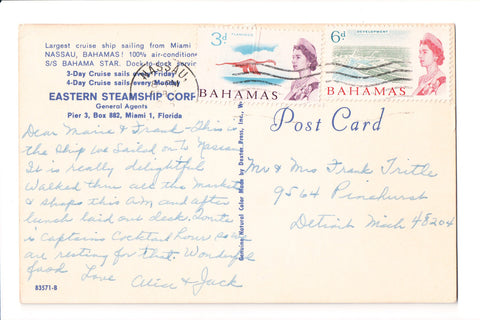 Largest cruise ship sailing from Miami
NASSAU, BAHAMAS! 100% air-condition
S/S BAHAMA STAR. Dock-to-dock servi
3-Day Cruise sails every Friday
4-Day Cruise sails every Monday
EASTERN STEAMSHIP CORP
General Agents
Pier 3, Box 882, Miami 1, Florida
NASSAU
3d
BAHAMAS
6d
DEVELOPMENT
BAHAMAS
Post Card
Genuine Natural Color Made by Dexter Press, Inc.
Dear Marie & Frank - This is
the ship we sailed on to Nassau
It is really delightful
Walked thru all the markets
& shops this A.M. and after
lunch laid out deck. Tonite
is Captains Cocktail hour so we
are resting for that. Wonderful
food Love Alice & Jack
Mr & Mrs Frank Tritle
9564 Pinehurst
Detroit Mich 48204
83571-B